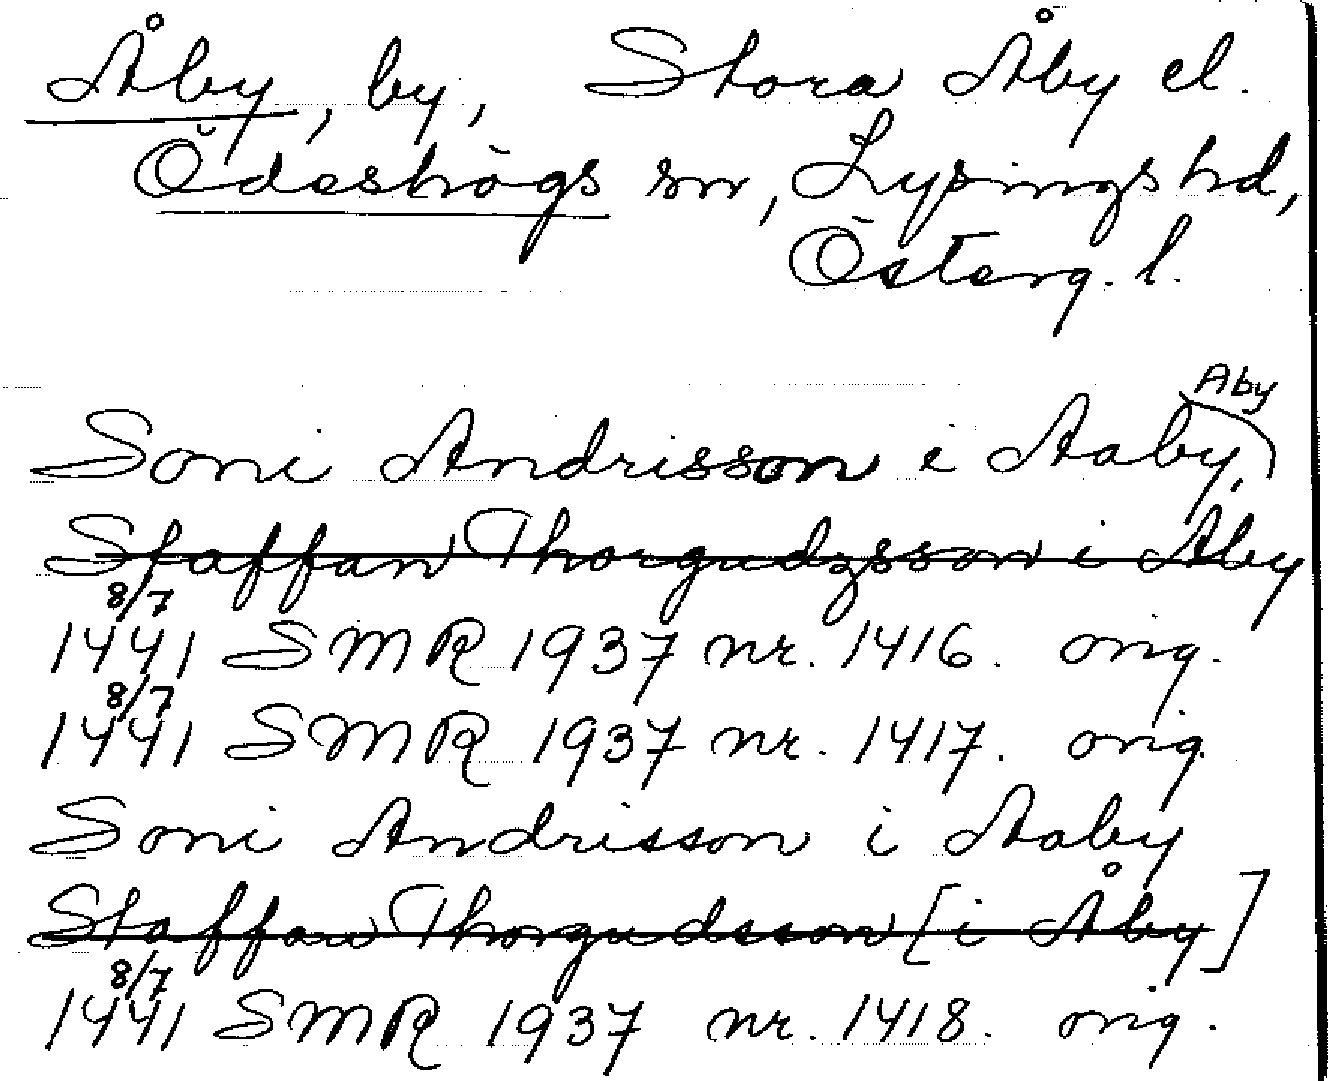 Åby, by, Stora Åby el.
Ödeshögs sn, Lysings hd,
Österg. l.
Aby
Soni Andrisson i Aaby,
Staffan Thorgudzsson i Åby
8/7
1441 SMR 1937 nr. 1416. orig.
8/7
1441 SMR 1937 nr. 1417. orig.
Soni Andrisson i Aaby
Staffan Thorgudsson [i Åby]
8/7
1441 SMR 1937 nr. 1418. orig.